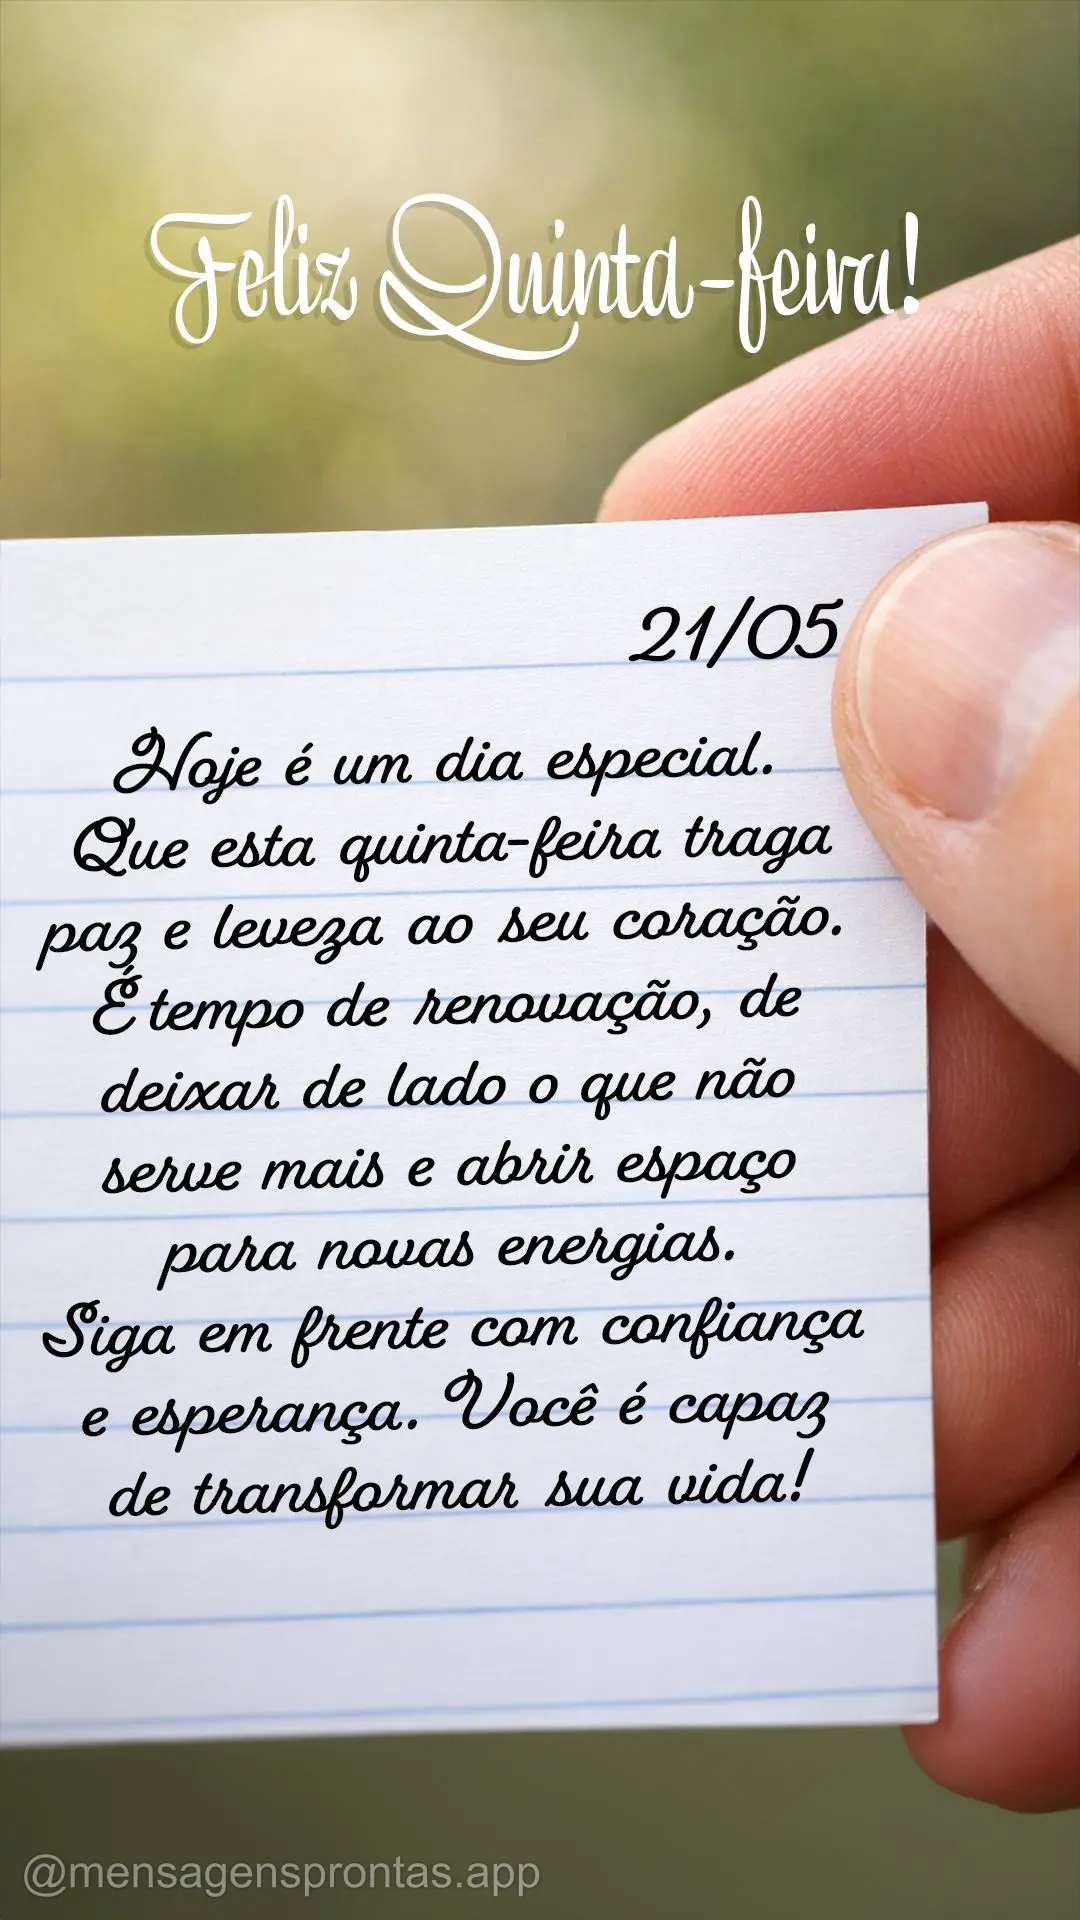 Feliz Quinta-feira!
21/05
Hoje é um dia especial.
Que esta quinta-feira traga
paz e leveza ao seu coração.
É tempo de renovação, de
deixar de lado o que não
serve mais e abrir espaço
para novas energias.
Siga em frente com confiança
e esperança. Você é capaz
de transformar sua vida!
@mensagensprontas.app